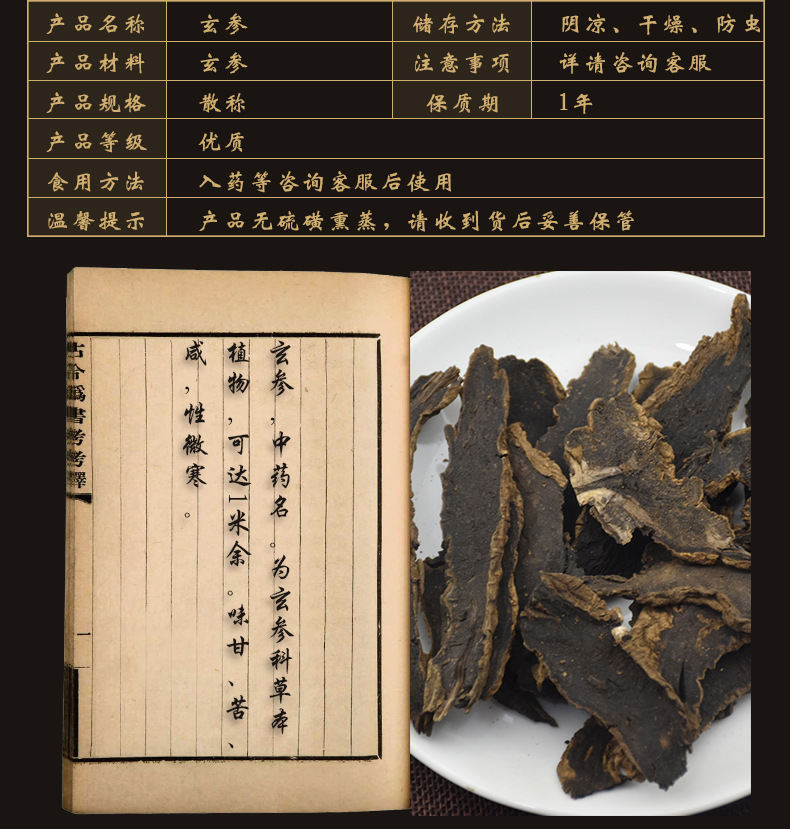 产品名称 玄参 储存方法 阴凉、干燥、防虫
产品材料 玄参 注意事项 详请咨询客服
产品规格 散称 保质期 1年
产品等级 优质
食用方法 入药等咨询客服后使用
温馨提示 产品无硫磺熏蒸，请收到货后妥善保管
玄参，中药名。为玄参科草本
植物，可达1米余。味甘、苦、
咸，性微寒。
古今伪書考考釋
一